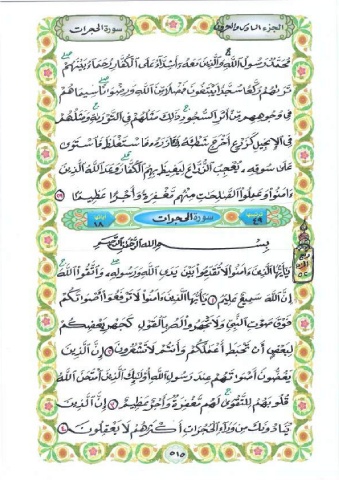 الجزء السادس والعشرون سورة الحجرات
محمد رسول الله والذين معه أشداء على الكفار رحماء بينهم
تريهم ركعا سجدا يبتغون فضلا من الله ورضونا سيماهم
في وجوههم من أثر السجود ذلك مثلهم في التورية ومثلهم
في الإنجيل كزرع أخرج شطئه فئازره فاستغلظ فاستوى
على سوقه يعجب الزراع ليغيظ بهم الكفار وعد الله الذين
ءامنوا وعملوا الصلحت منهم مغفرة وأجرا عظيما ٢٩
ترتيبها ٤٩ سورة الحجرات آياتها ١٨
بسم الله الرحمن الرحيم
يأيها الذين ءامنوا لا تقدموا بين يدى الله ورسوله واتقوا الله
إن الله سميع عليم ١ يأيها الذين ءامنوا لا ترفعوا أصوتكم
فوق صوت النبي ولا تجهروا له بالقول كجهر بعضكم
لبعض أن تحبط أعملكم وأنتم لا تشعرون ٢ إن الذين
يغضون أصوتهم عند رسول الله أولئك الذين امتحن الله
قلوبهم للتقوى لهم مغفرة وأجر عظيم ٣ إن الذين
ينادونك من وراء الحجرات أكثرهم لا يعقلون ٤
٥١٥